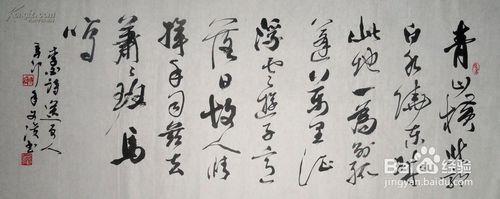 青山横北郭
白水绕东城
此地一为别孤
蓬万里征
浮云游子意
落日故人情
挥手自兹去
萧萧班马
鸣
李白诗送友人
辛卯年文汉书
Baidu经验
jingyan.baidu.com